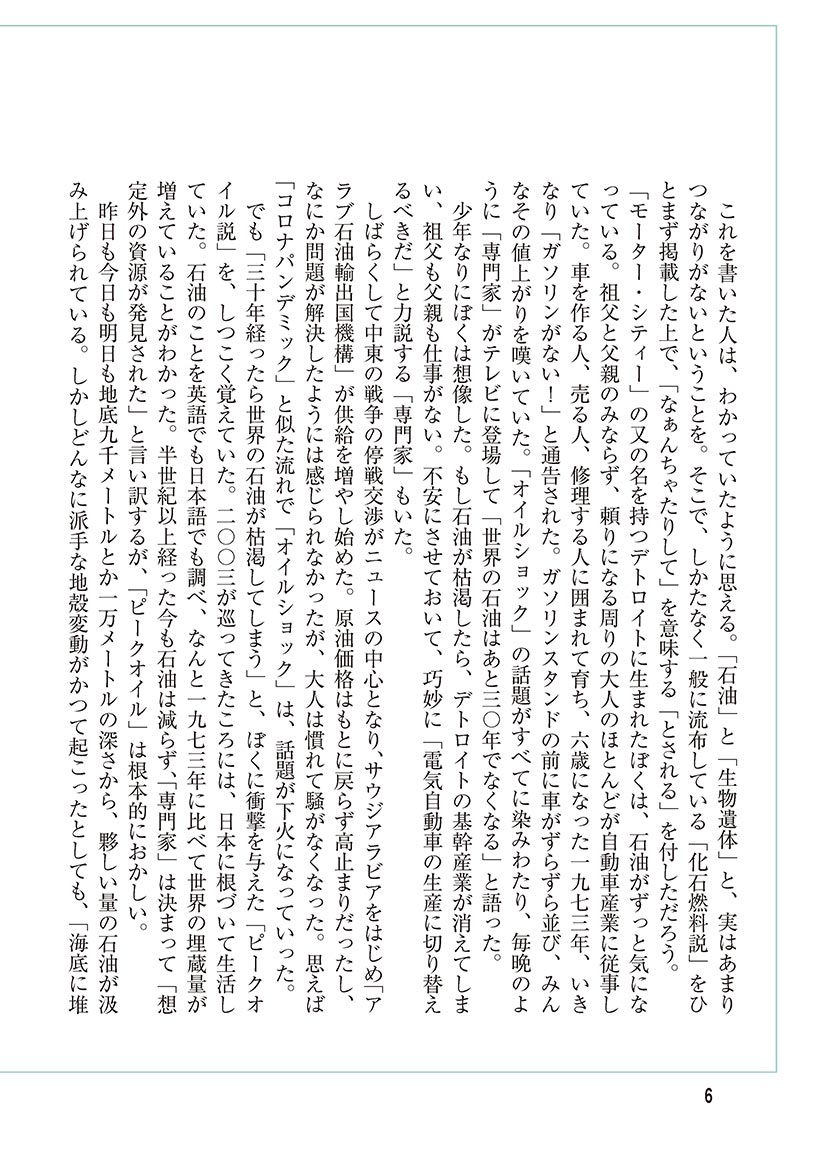 これを書いた人は、わかっていたように思える。「石油」と「生物遺体」と、実はあまり
つながりがないということを。そこで、しかたなく一般に流布している「化石燃料説」をひ
とまず掲載した上で、「なぁんちゃたりして」を意味する「とされる」を付しただろう。
「モーター・シティー」の又の名を持つデトロイトに生まれたぼくは、石油がずっと気にな
っている。祖父と父親のみならず、頼りになる周りの大人のほとんどが自動車産業に従事し
ていた。車を作る人、売る人、修理する人に囲まれて育ち、六歳になった一九七三年、いき
なり「ガソリンがない！」と通告された。ガソリンスタンドの前に車がずらずら並び、みん
なその値上がりを嘆いていた。「オイルショック」の話題がすべてに染みわたり、毎晩のよ
うに「専門家」がテレビに登場して「世界の石油はあと三〇年でなくなる」と語った。
少年なりにぼくは想像した。もし石油が枯渇したら、デトロイトの基幹産業が消えてしま
い、祖父も父親も仕事がない。不安にさせておいて、巧妙に「電気自動車の生産に切り替え
るべきだ」と力説する「専門家」もいた。
しばらくして中東の戦争の停戦交渉がニュースの中心となり、サウジアラビアをはじめ「ア
ラブ石油輸出国機構」が供給を増やし始めた。原油価格はもとに戻らず高止まりだったし、
なにか問題が解決したようには感じられなかったが、大人は慣れて騒がなくなった。思えば
「コロナパンデミック」と似た流れで「オイルショック」は、話題が下火になっていった。
でも「三十年経ったら世界の石油が枯渇してしまう」と、ぼくに衝撃を与えた「ピークオ
イル説」を、しつこく覚えていた。二〇〇三が巡ってきたころには、日本に根づいて生活し
ていた。石油のことを英語でも日本語でも調べ、なんと一九七三年に比べて世界の埋蔵量が
増えていることがわかった。半世紀以上経った今も石油は減らず、「専門家」は決まって「想
定外の資源が発見された」と言い訳するが、「ピークオイル」は根本的におかしい。
昨日も今日も明日も地底九千メートルとか一万メートルの深さから、夥しい量の石油が汲
み上げられている。しかしどんなに派手な地殻変動がかつて起こったとしても、「海底に堆
6